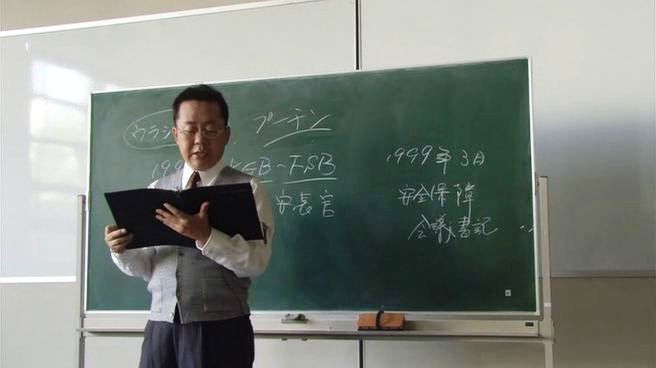 ウラジ プーチン
199 KGB-FSB
安長官
1999年3月
安全保障
会議書記